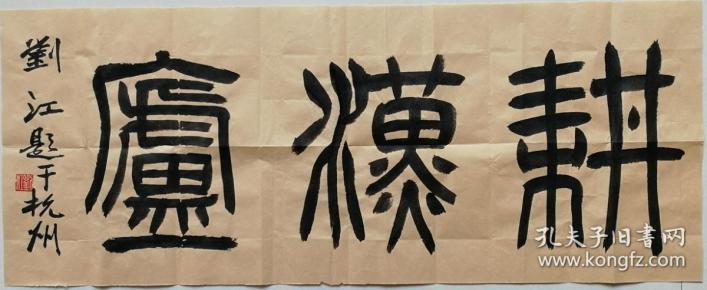 耕漢廬
劉江题于杭州
孔夫子旧书网
www.kongfz.com